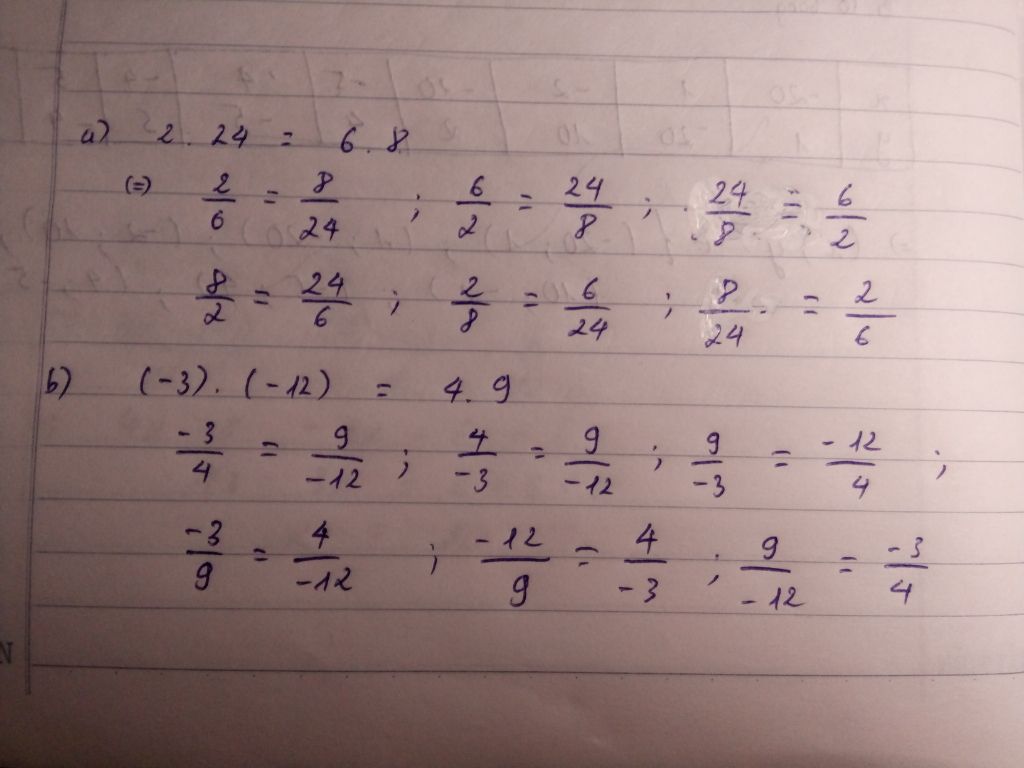 a) 2 . 24 = 6 . 8
(=) 2/6 = 8/24 ; 6/2 = 24/8 ; 24/8 = 6/2
8/2 = 24/6 ; 2/8 = 6/24 ; 8/24 = 2/6
b) (-3) . (-12) = 4 . 9
-3/4 = 9/-12 ; 4/-3 = 9/-12 ; 9/-3 = -12/4 ;
-3/9 = 4/-12 ; -12/9 = 4/-3 ; 9/-12 = -3/4
N